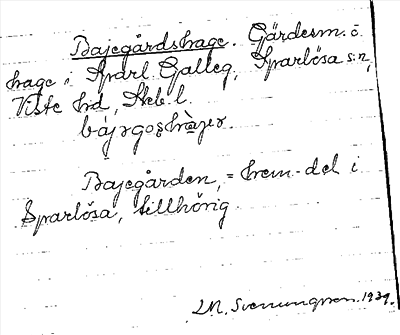 Bajegårdshage. Gärdesm. o.
hage i Sparl. Galleg, Sparlösa sn,
Viste hd, Skb. l.
bájrgoshàger.
Bajegården, = hem-del i
Sparlösa, tillhörig
M. Svenungsson. 1939.